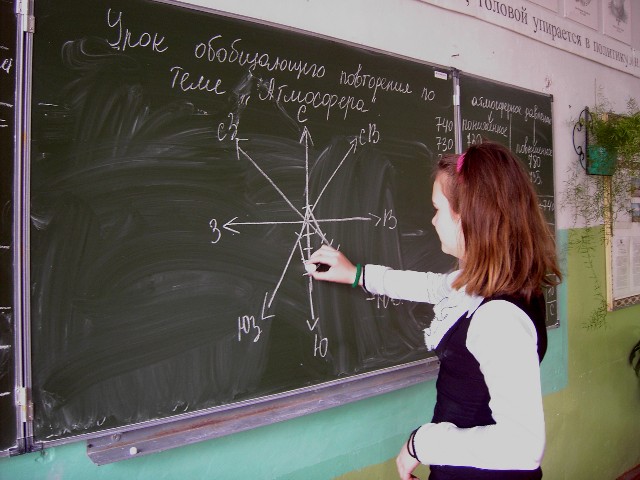 Урок обобщающего повторения по
теме "Атмосфера"
С
СЗ
СВ
З
В
ЮЗ
Ю
740
730
атмосферное давление
пониженное
повышенное
780
головой упирается в политику